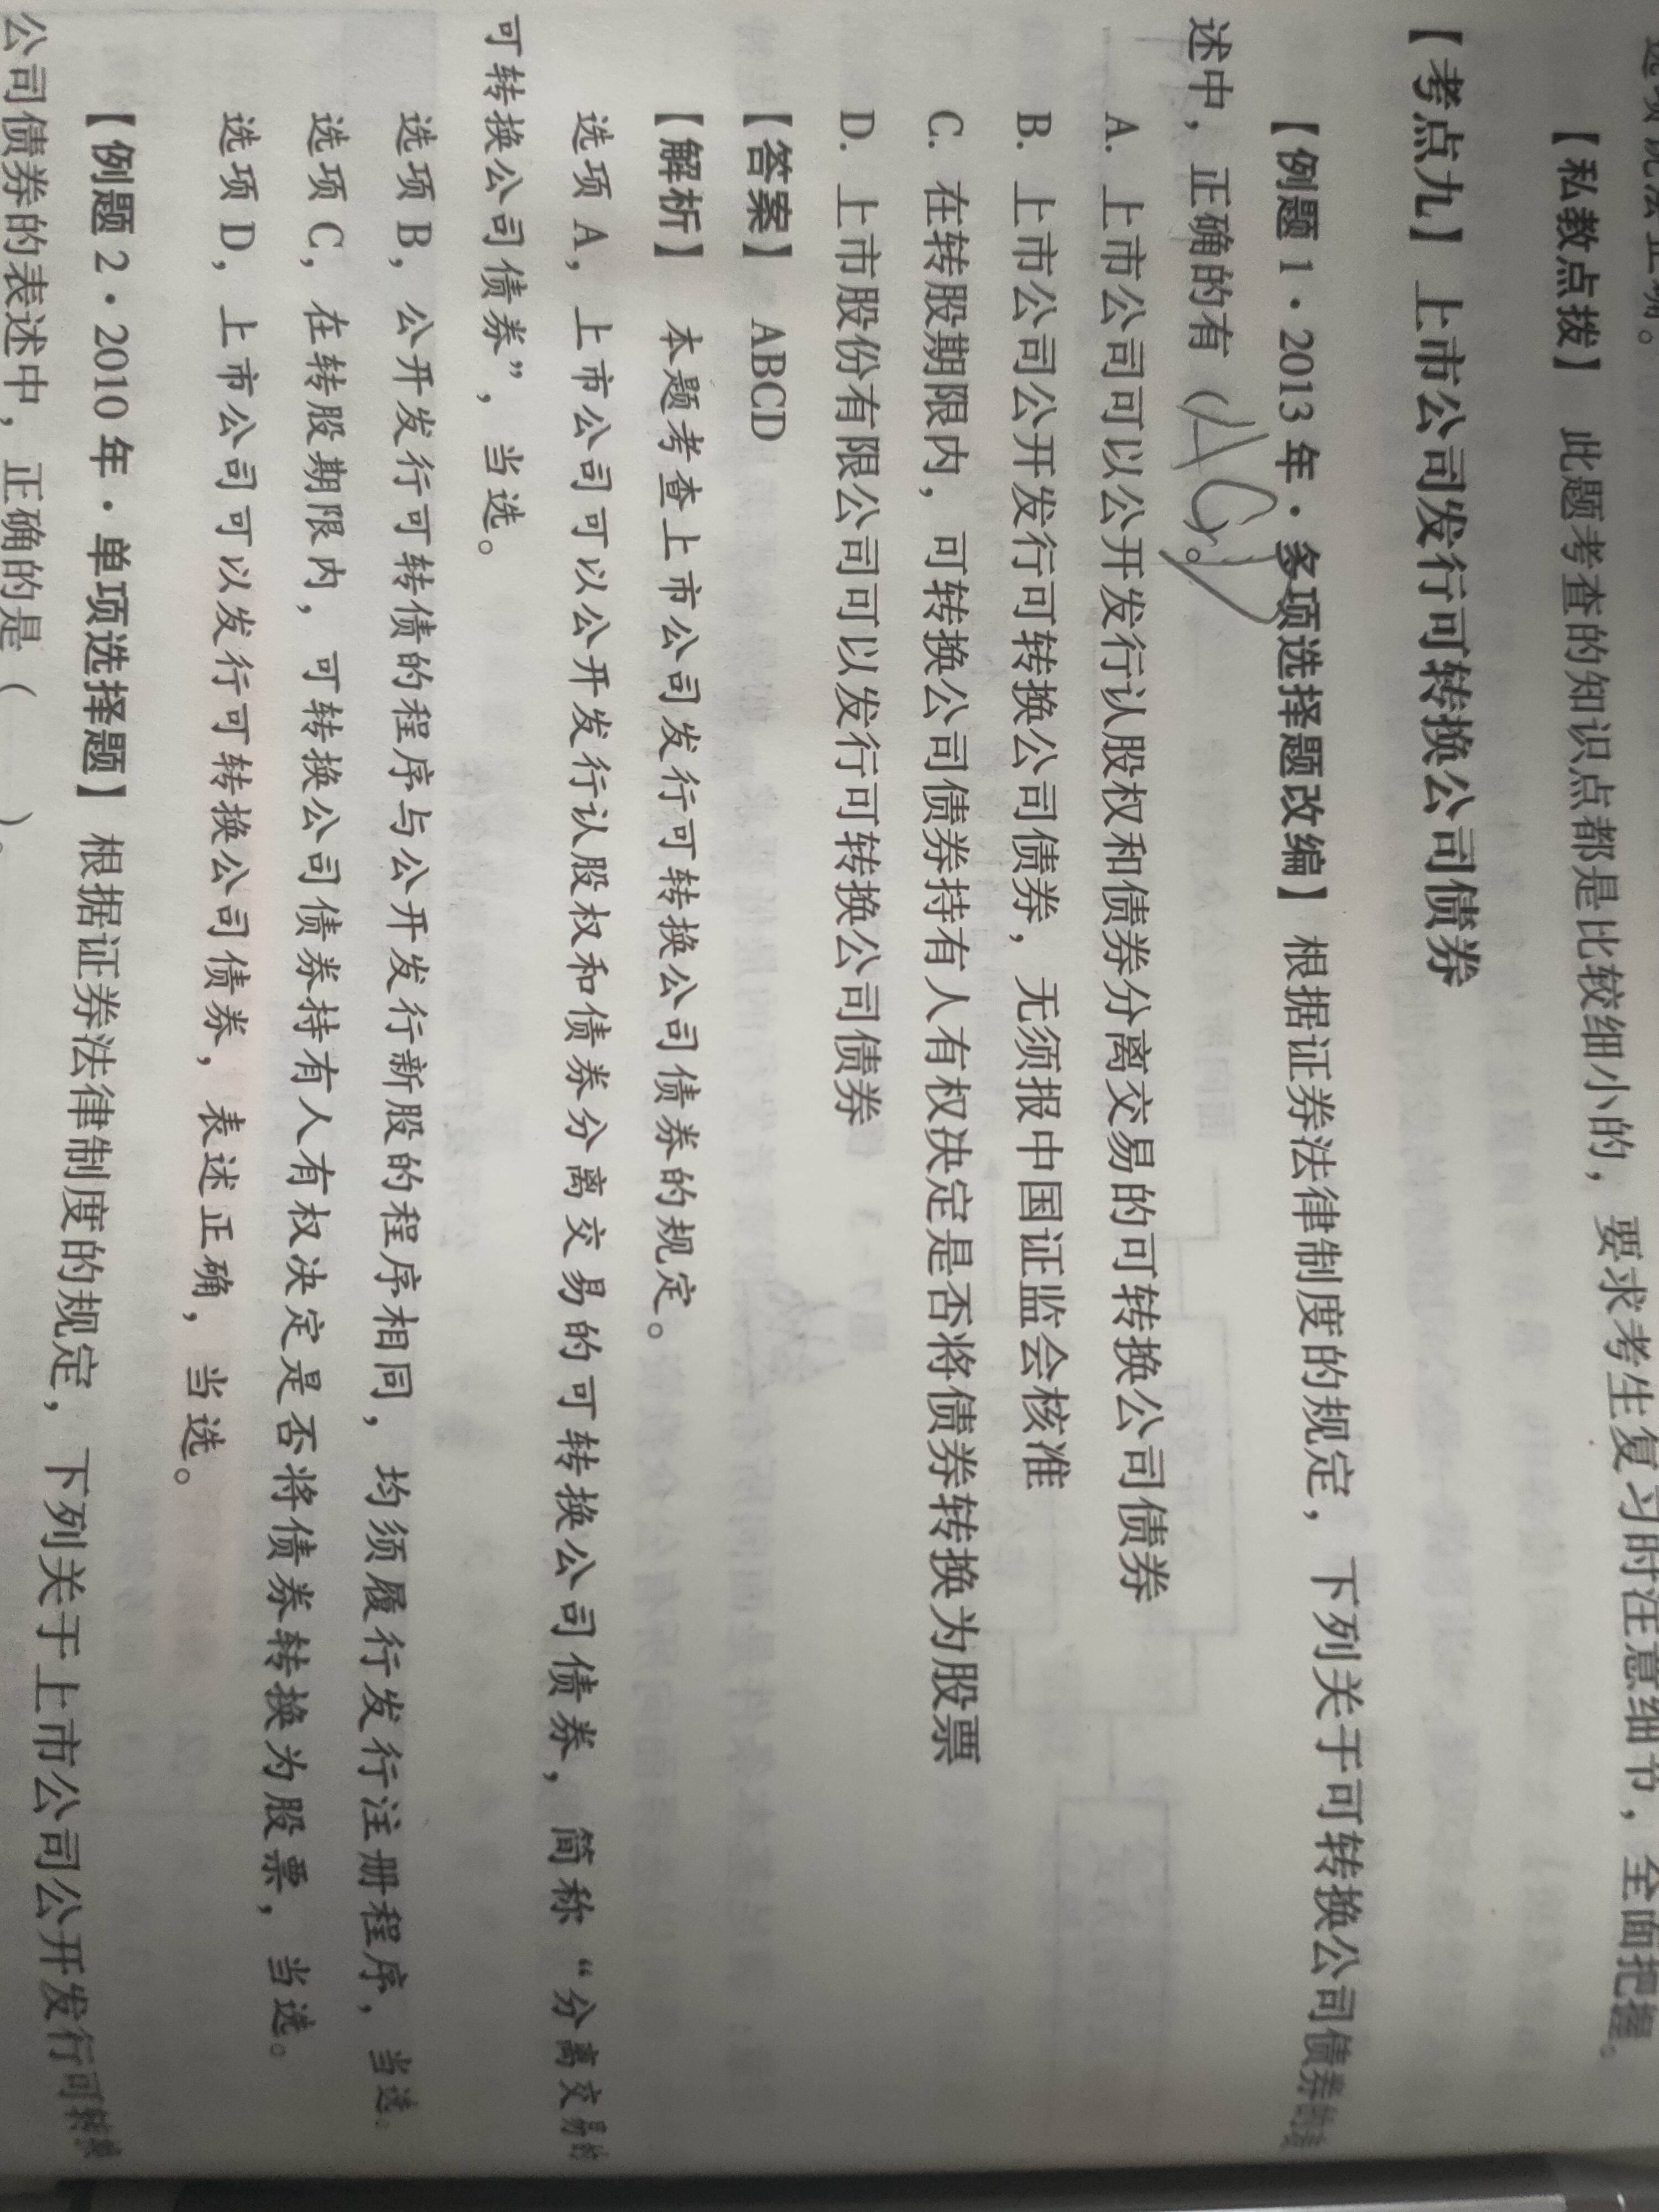 选项说法正确。
【私教点拨】 此题考查的知识点都是比较细小的，要求考生复习时注意细节，全面把握。
【考点九】上市公司发行可转换公司债券
【例题 1·2013 年·多项选择题改编】根据证券法律制度的规定，下列关于可转换公司债券的表
述中，正确的有（ ACD ）。
A. 上市公司可以公开发行认股权和债券分离交易的可转换公司债券
B. 上市公司公开发行可转换公司债券，无须报中国证监会核准
C. 在转股期限内，可转换公司债券持有人有权决定是否将债券转换为股票
D. 上市股份有限公司可以发行可转换公司债券
【答案】 ABCD
【解析】 本题考查上市公司发行可转换公司债券的规定。
选项 A，上市公司可以公开发行认股权和债券分离交易的可转换公司债券，简称“分离交易的
可转换公司债券”，当选。
选项 B，公开发行可转债的程序与公开发行新股的程序相同，均须履行发行注册程序，当选。
选项 C，在转股期限内，可转换公司债券持有人有权决定是否将债券转换为股票，当选。
选项 D，上市公司可以发行可转换公司债券，表述正确，当选。
【例题 2·2010 年·单项选择题】根据证券法律制度的规定，下列关于上市公司公开发行可转换
公司债券的表述中，正确的是（ ）。